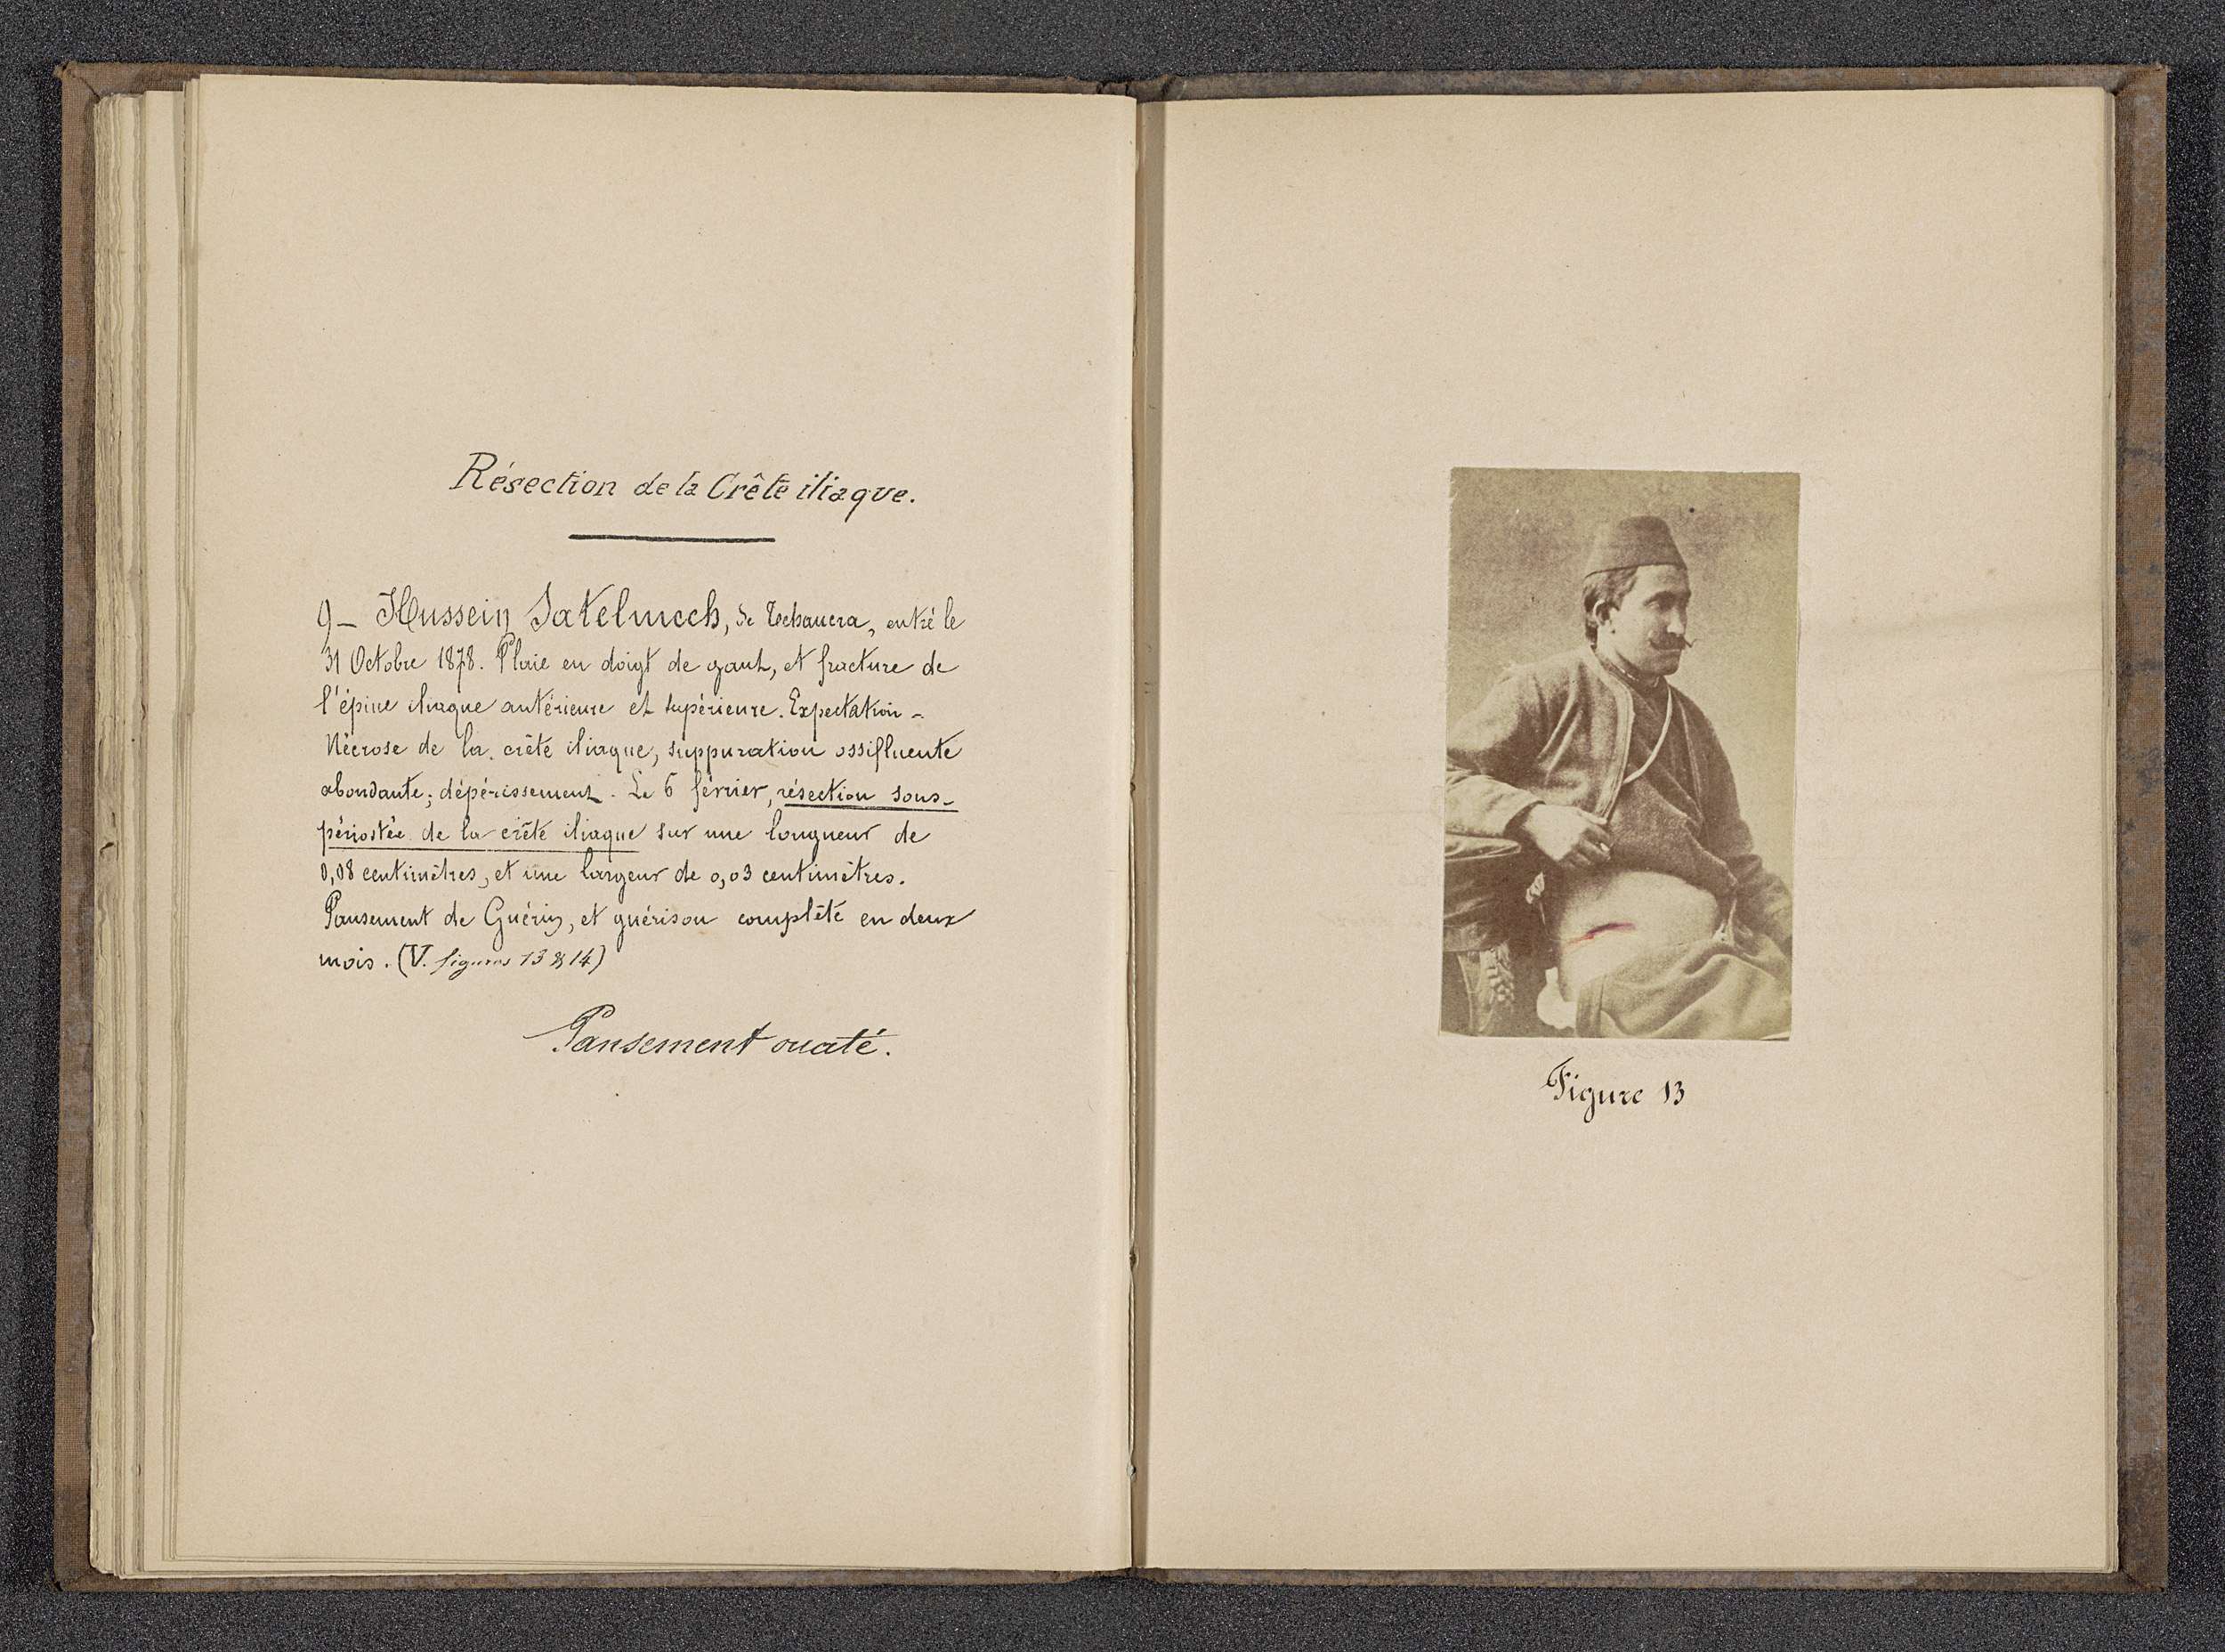 Résection de la Crête iliaque.
9 – Hussein Satelmech, de Tschauera, entré le
31 Octobre 1878. Plaie en doigt de gant, et fracture de
l'épine iliaque antérieure et supérieure. Expectation –
Nécrose de la crête iliaque, suppuration ossifluente
abondante; dépérissement. Le 6 février, résection sous-
périostée de la crête iliaque sur une longueur de
0,08 centimètres, et une largeur de 0,03 centimètres.
Pansement de Guérin, et guérison complète en deux
mois. (V. figures 13 & 14)
Pansement ouaté.
Figure 13